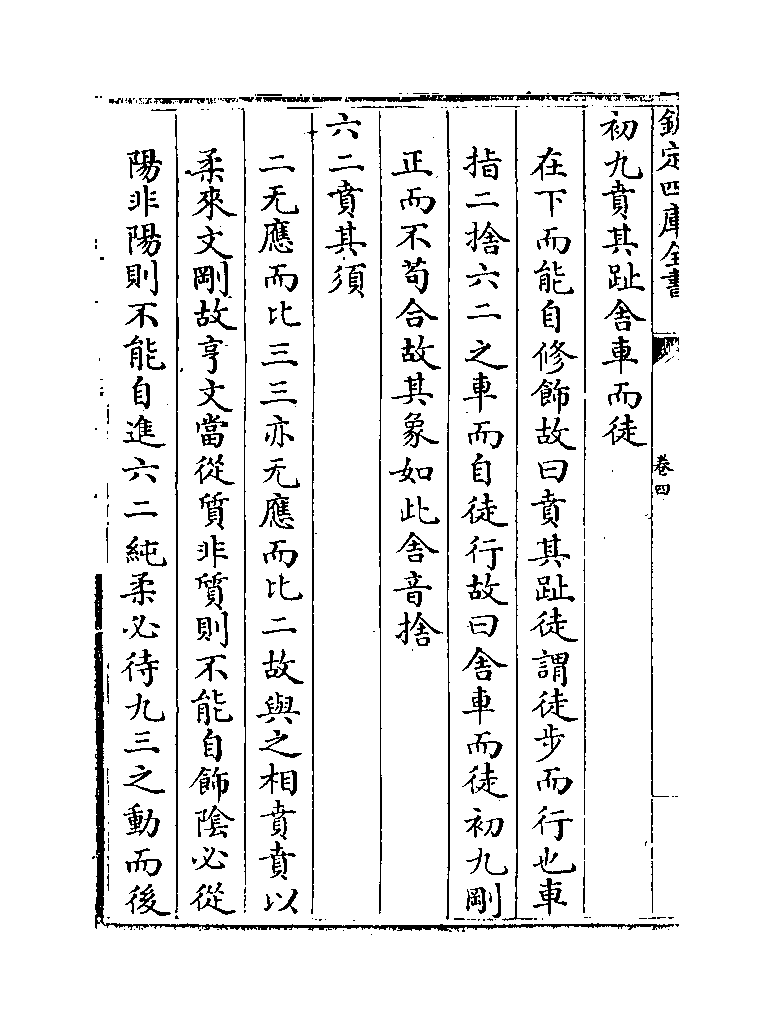 欽定四庫全書
卷四
初九賁其趾舍車而徒
在下而能自修飾故曰賁其趾徒謂徒步而行也車
指二捨六二之車而自徒行故曰舍車而徒初九剛
正而不苟合故其象如此舍音捨
六二賁其須
二无應而比三三亦无應而比二故與之相賁賁以
柔來文剛故亨文當從質非質則不能自飾陰必從
陽非陽則不能自進六二純柔必待九三之動而後